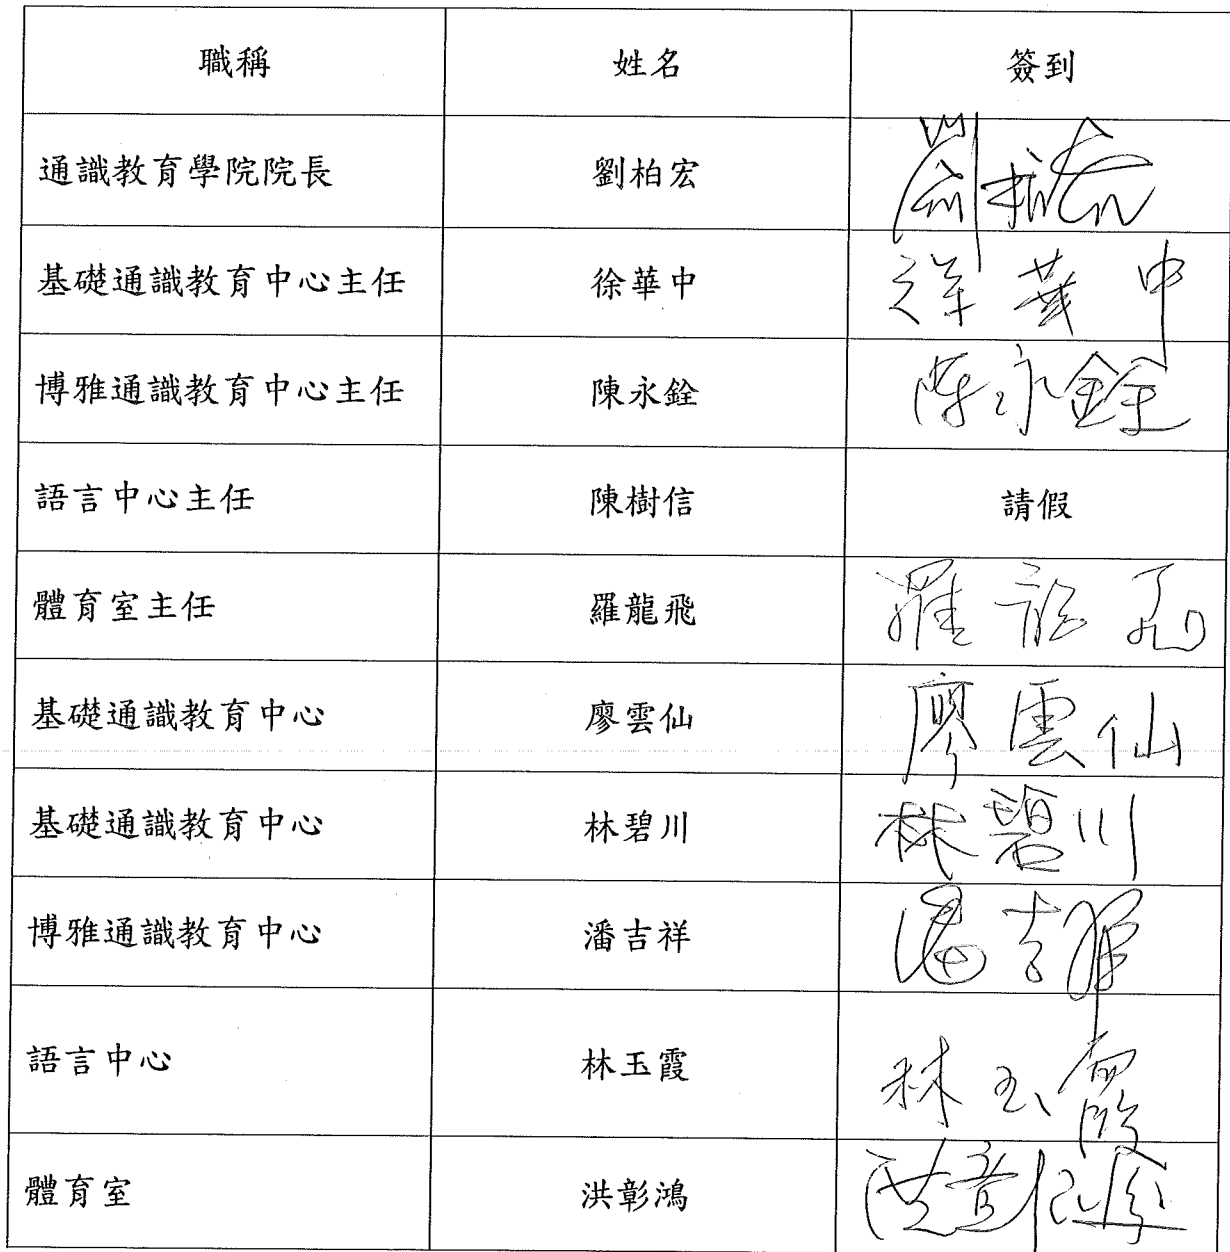 職稱 姓名 簽到
通識教育學院院長 劉柏宏 劉柏宏
基礎通識教育中心主任 徐華中 徐華中
博雅通識教育中心主任 陳永銓 陳永銓
語言中心主任 陳樹信 請假
體育室主任 羅龍飛 羅龍飛
基礎通識教育中心 廖雲仙 廖雲仙
基礎通識教育中心 林碧川 林碧川
博雅通識教育中心 潘吉祥 潘吉祥
語言中心 林玉霞 林玉霞
體育室 洪彰鴻 洪彰鴻